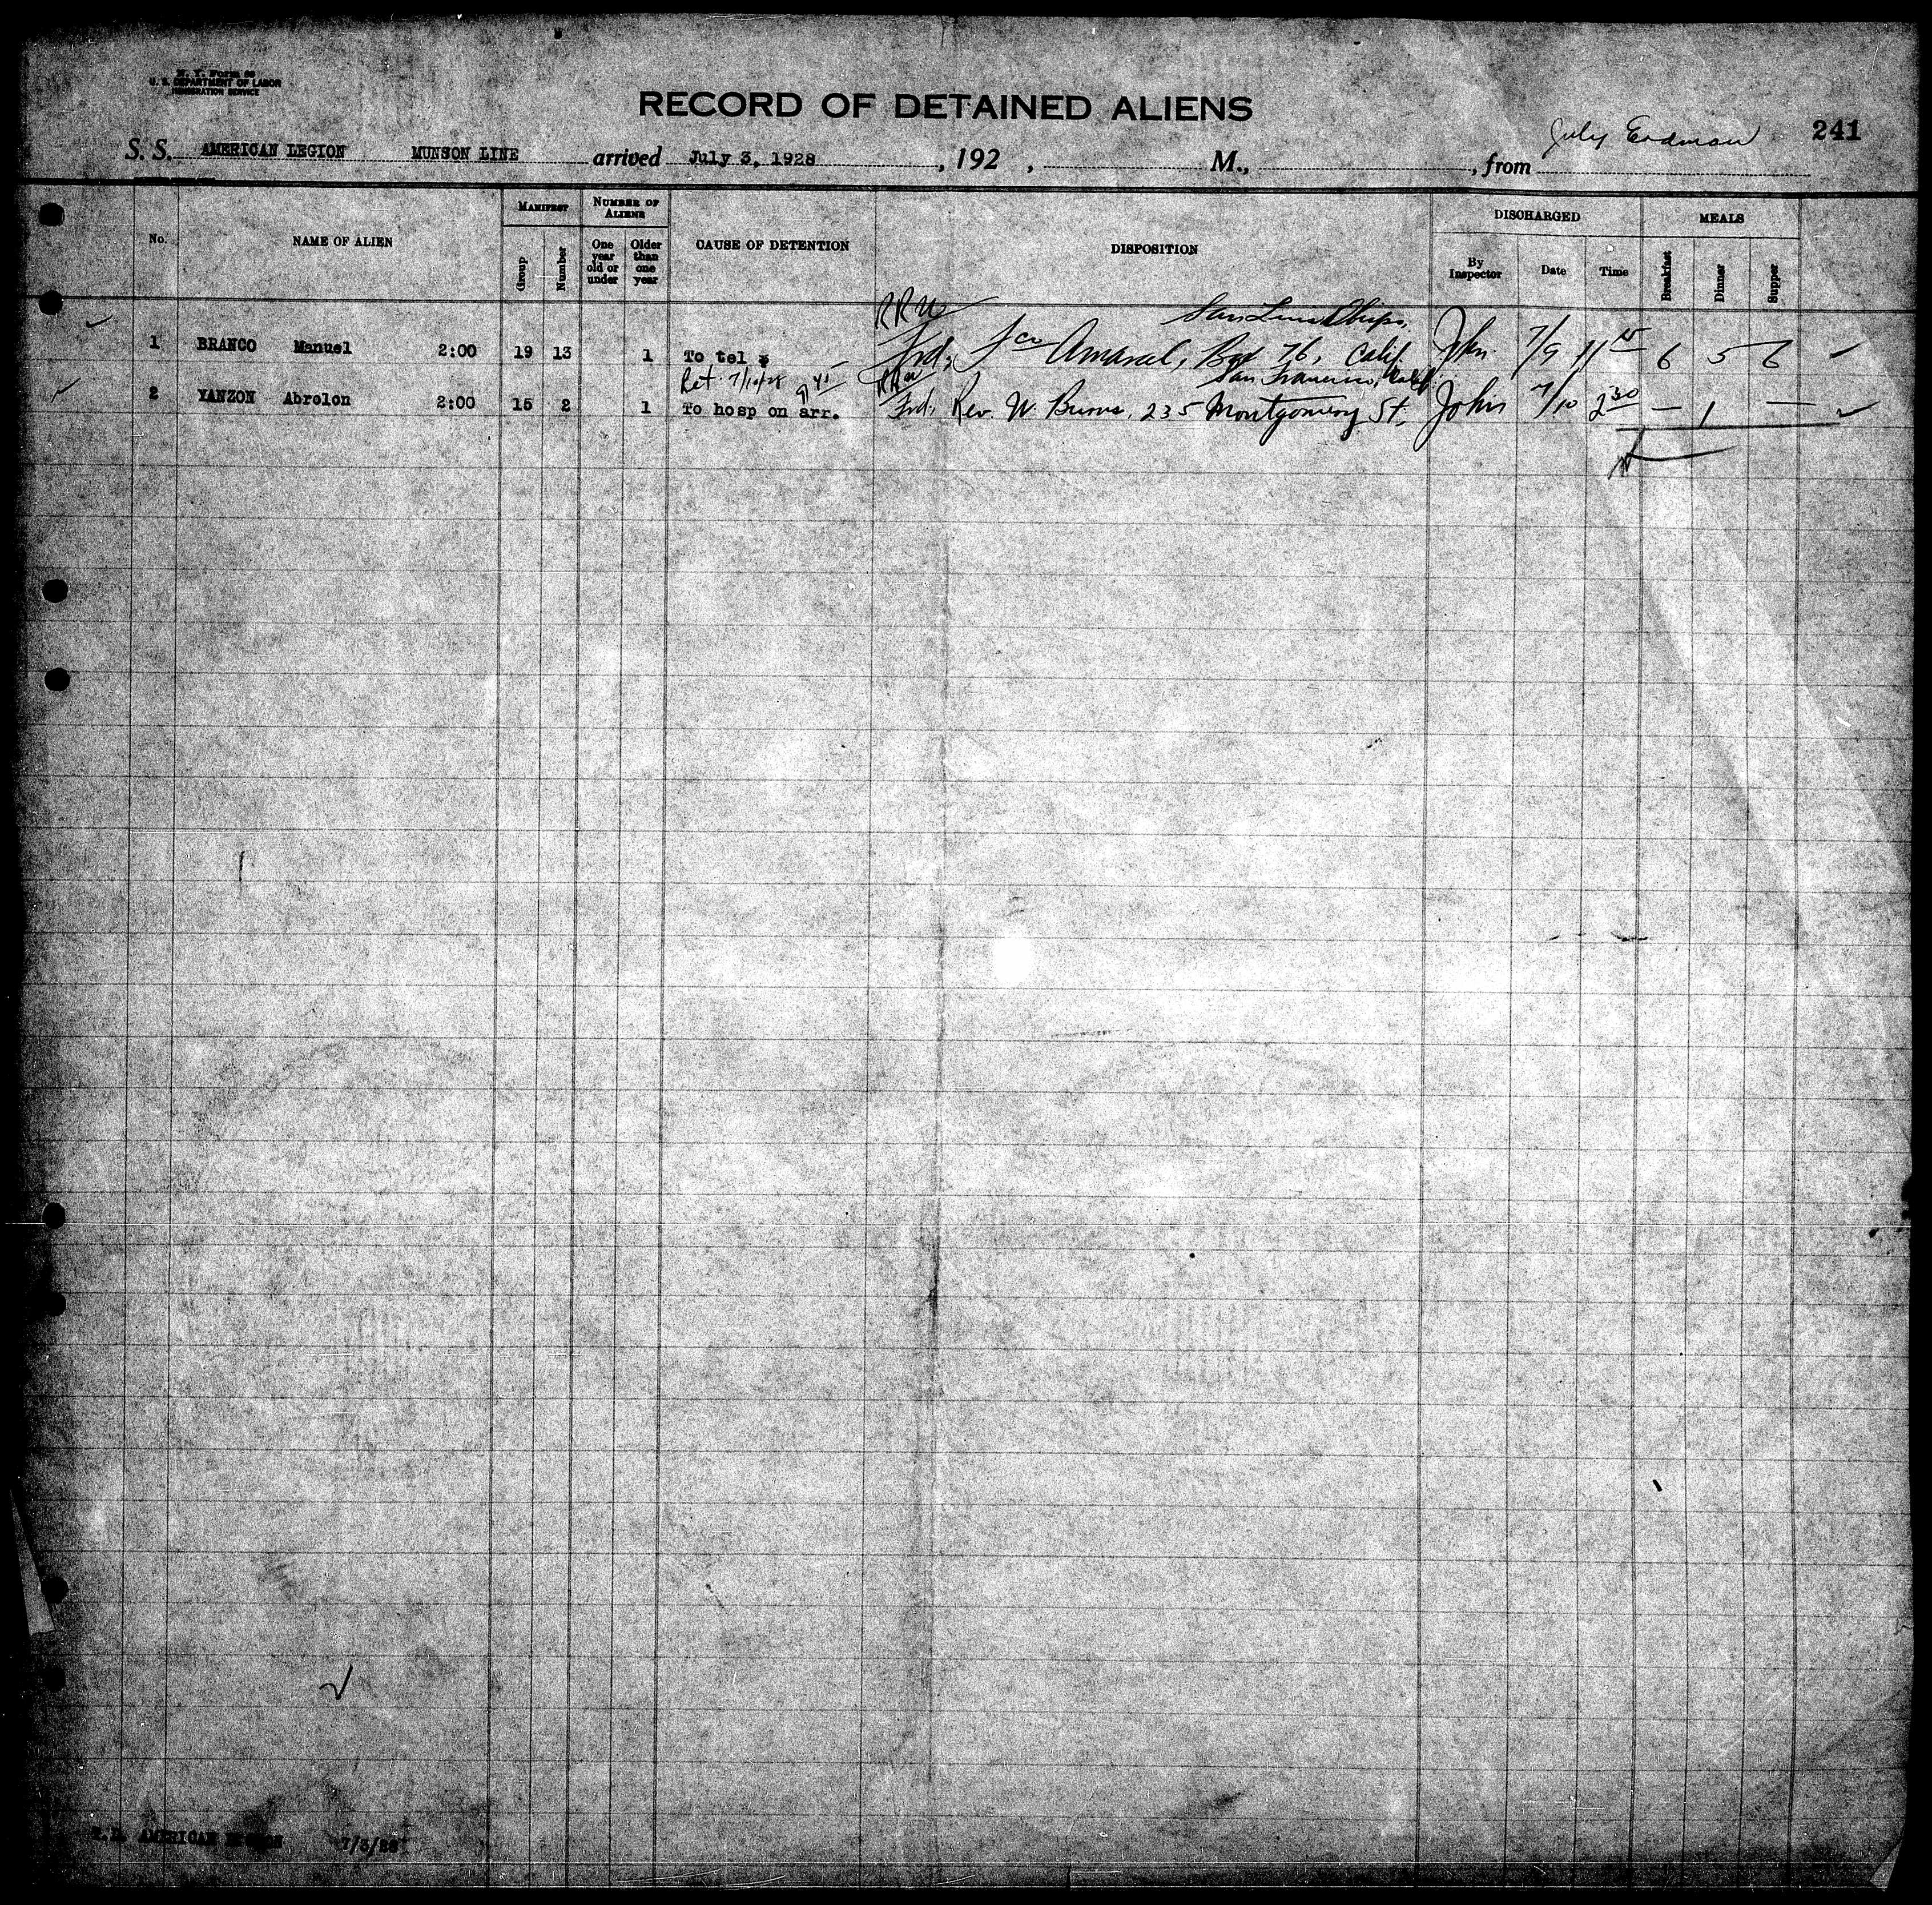 N. Y. Form 89
U. S. DEPARTMENT OF LABOR
IMMIGRATION SERVICE
RECORD OF DETAINED ALIENS
241
S. S. AMERICAN LEGION MUNSON LINE arrived July 3, 1928, 192 , M., , from July Erdman
No.
NAME OF ALIEN
MANIFEST
Group
Number
NUMBER OF ALIENS
One year old or under
Older than one year
CAUSE OF DETENTION
DISPOSITION
DISCHARGED
By Inspector
Date
Time
MEALS
Breakfast
Dinner
Supper
San Luis Obispo,
1 BRANCO Manuel 2:00 19 13 1 To tel Amaral, Box 76, Calif. John 7/9 11 15 6 5 6
Ret. 7/10/28 San Francisco, Calif
2 YANZON Abrolon 2:00 15 2 1 To hosp on arr. Frd, Rev. W. Burns, 235 Montgomery St. John 7/10 2 30 — 1 —
AMERICAN LEGION 7/3/28